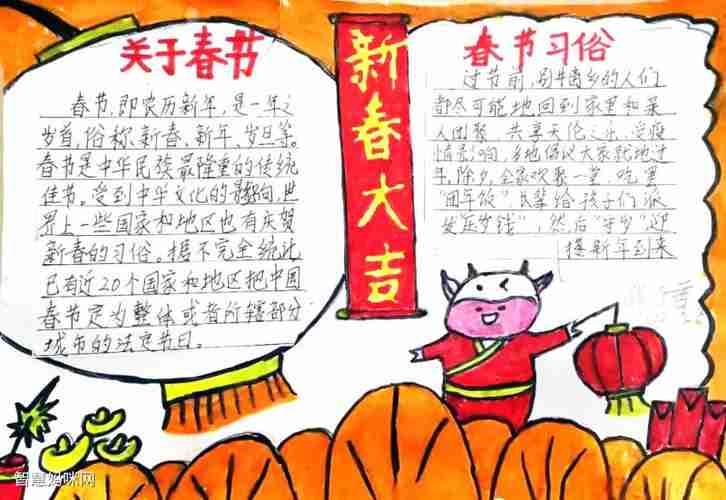 关于春节
春节,即农历新年,是一年之
岁首,俗称新春、新年、岁旦等。
春节是中华民族最隆重的传统
佳节。受到中华文化的影响,世
界上一些国家和地区也有庆贺
新春的习俗。据不完全统计
已有近20个国家和地区把中国
春节定为整体或者所辖部分
城市的法定节日。
新春大吉
春节习俗
过节前,别井离乡的人们
都尽可能地回到家里和亲
人团聚,共享天伦之乐,受疫
情影响,各地倡议大家就地过
年,除夕,全家欢聚一堂,吃罢
"团年饭",长辈给孩子们派
发压岁钱",然后"守岁"迎
接新年到来
智慧妈咪网